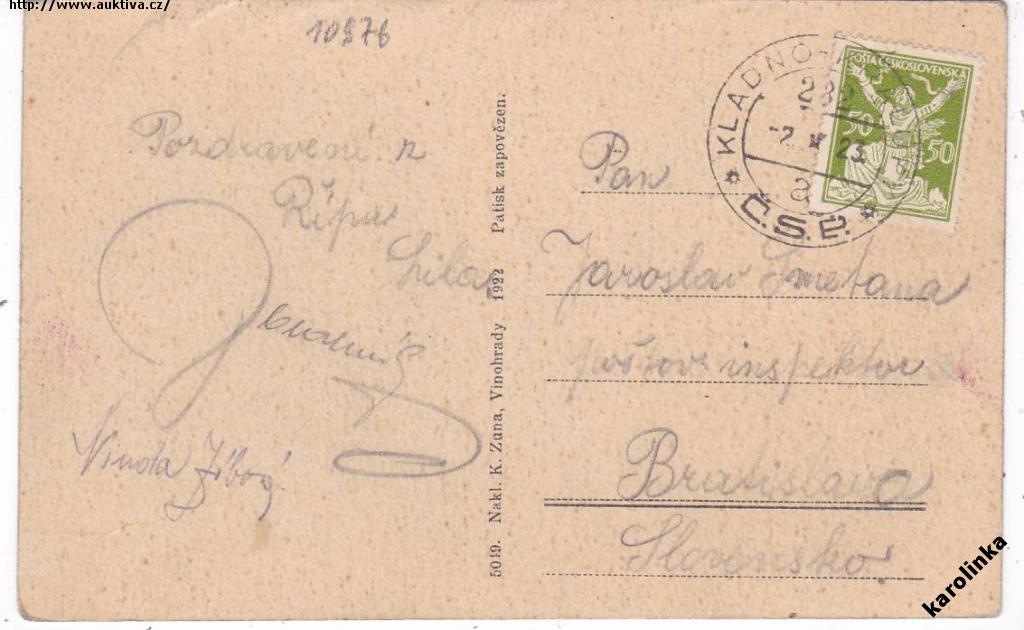 http://www.auktiva.cz/
10976
Pozdravení z
Řípu
5049. Nakl. K. Zuna, Vinohrady 1922 Patisk zapovězen.
KLADNO
-2. X 23
Č.S.P.
POŠTA ČESKOSLOVENSKÁ
50 50
Pan
Jaroslav Smetana
poštov. inspektor
Bratislava
Slovensko.
karolinka